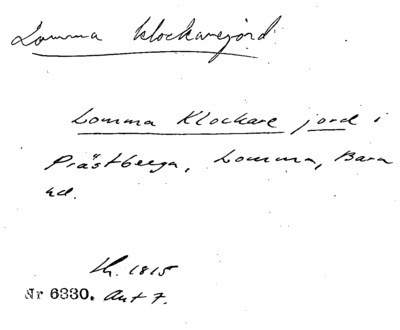 Lomma klockarejord
Lomma Klockare jord i
Prästberga, Lomma, Bara
hd.
Lh. 1815
Nr 6330. Akt 7.